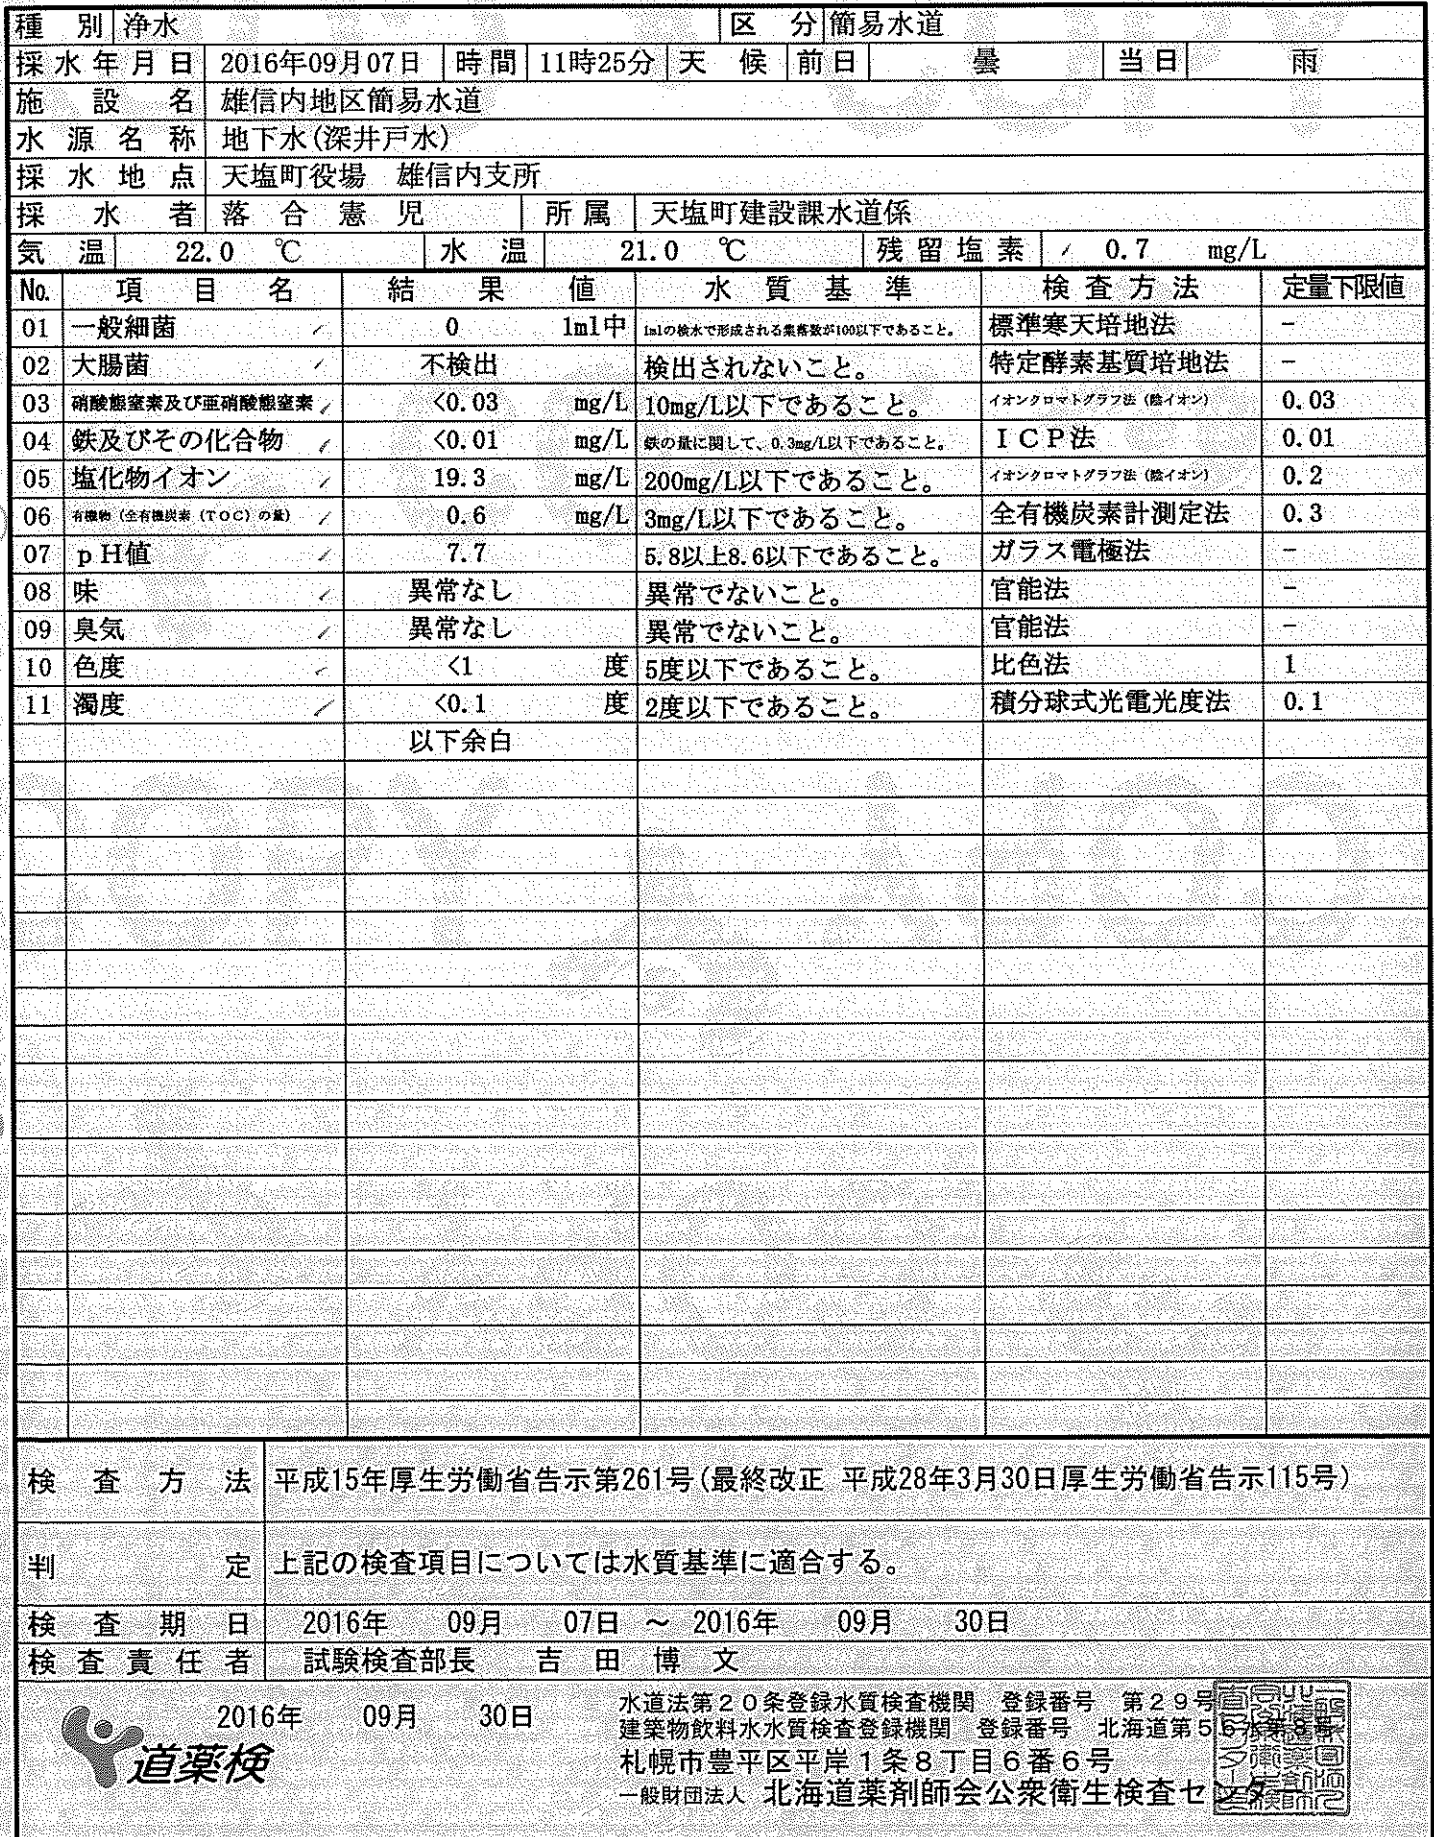 種 別 浄水 区 分 簡易水道
採水年月日 2016年09月07日 時間 11時25分 天 候 前日 曇 当日 雨
施 設 名 雄信内地区簡易水道
水 源 名 称 地下水(深井戸水)
採 水 地 点 天塩町役場 雄信内支所
採 水 者 落 合 憲 児 所属 天塩町建設課水道係
気 温 22.0 ℃ 水 温 21.0 ℃ 残留塩素 0.7 mg/L
No. 項 目 名 結 果 値 水 質 基 準 検査方法 定量下限値
01 一般細菌 0 1ml中 1mlの検水で形成される集落数が100以下であること。 標準寒天培地法 -
02 大腸菌 不検出 検出されないこと。 特定酵素基質培地法 -
03 硝酸態窒素及び亜硝酸態窒素 <0.03 mg/L 10mg/L以下であること。 イオンクロマトグラフ法(陰イオン) 0.03
04 鉄及びその化合物 <0.01 mg/L 鉄の量に関して、0.3mg/L以下であること。 ICP法 0.01
05 塩化物イオン 19.3 mg/L 200mg/L以下であること。 イオンクロマトグラフ法(陰イオン) 0.2
06 有機物(全有機炭素(TOC)の量) 0.6 mg/L 3mg/L以下であること。 全有機炭素計測定法 0.3
07 pH値 7.7 5.8以上8.6以下であること。 ガラス電極法 -
08 味 異常なし 異常でないこと。 官能法 -
09 臭気 異常なし 異常でないこと。 官能法 -
10 色度 <1 度 5度以下であること。 比色法 1
11 濁度 <0.1 度 2度以下であること。 積分球式光電光度法 0.1
以下余白
検 査 方 法 平成15年厚生労働省告示第261号(最終改正 平成28年3月30日厚生労働省告示115号)
判 定 上記の検査項目については水質基準に適合する。
検 査 期 日 2016年 09月 07日 ～ 2016年 09月 30日
検 査 責 任 者 試験検査部長 吉 田 博 文
2016年 09月 30日
道薬検
水道法第20条登録水質検査機関 登録番号 第29号
建築物飲料水水質検査登録機関 登録番号 北海道第56水第8号
札幌市豊平区平岸1条8丁目6番6号
一般財団法人 北海道薬剤師会公衆衛生検査センター